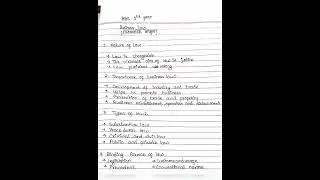 BBA 5th year
Business law
1. Nature of law
→ Law is changeable
→ The ultimate aim of law is justice
→ Law
2. Importance of business law:
→ Development of industry and trade
→ Helps to promote business
→ Protection of trade and property
→ Business establishment, operation and
3. Types of law:
→ Substantive law
→ Procedural law
→ Criminal and civil law
→ Public and private law
4. Binding Source of law
→ Legislation
→ Precedent → Conventional norms